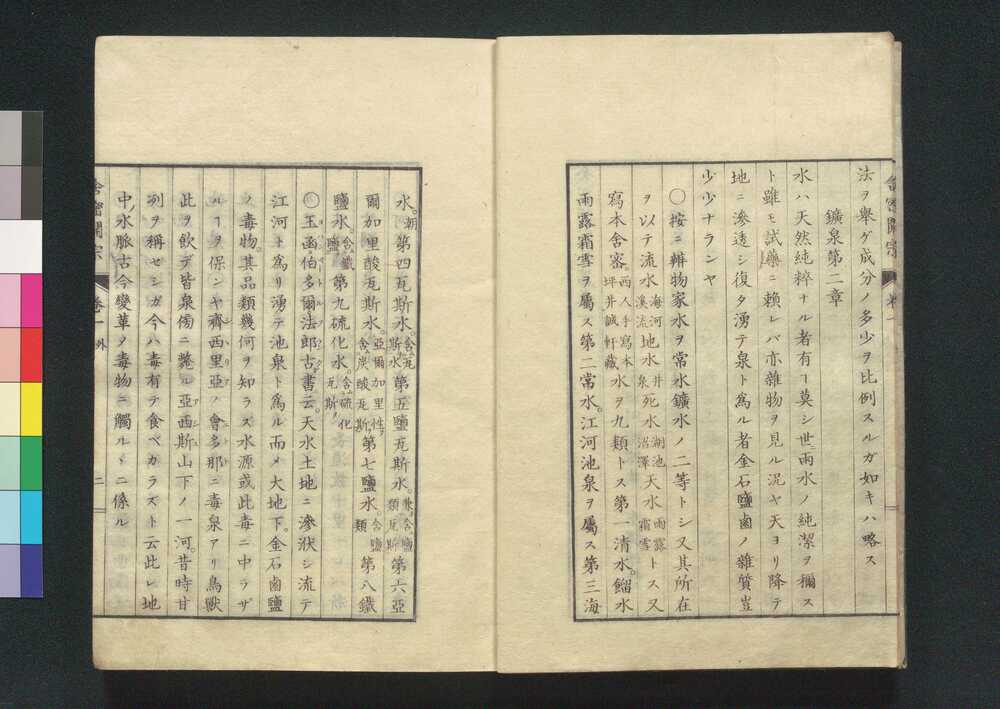 法ヲ舉ゲ成分ノ多少ヲ比例スルガ如キハ略ス
鑛泉第二章
水ハ天然純粹ナル者有ヿ莫シ世雨水ノ純潔ヲ稱ス
ト雖モ試藥ニ賴レバ亦雜物ヲ見ル況ヤ天ヨリ降テ
地ニ滲透シ復タ湧テ泉ト爲ル者金石鹽鹵ノ雜質豈
少少ナランヤ
〇按ニ辨物家水ヲ常水鑛水ノ二等トシ又其所在
ヲ以テ流水 海河溪流 地水 井泉 死水 湖池沼澤 天水 雨露霜雪 トス又
寫本舍密 西人手寫本坪井誠軒藏 水ヲ九類トス第一清水。餾水
雨露霜雪ヲ屬ス第二常水。江河池泉ヲ屬ス第三海
水。潮第四瓦斯水。含瓦斯水 第五鹽瓦斯水。兼含鹽類瓦斯 第六亞
爾加里酸瓦斯水。亞爾加里性ヲ含炭酸瓦斯 第七鹽水。含鹽類 第八鐵
鹽水。含鐵鹽 第九硫化水。含硫化瓦斯
〇玉函伯多爾法郎古書云。天水土地ニ滲洑シ流テ
江河ト爲リ湧テ池泉ト爲ル而メ大地下。金石鹵鹽
ノ毒物。其品類幾何ヲ知ラズ水源或此毒ニ中ラザ
ルヿヲ保ンヤ齊西里亞ノ會多那ニ毒泉アリ鳥獸
此ヲ飲デ皆泉傍ニ斃ル亞西斯山下ノ一河。昔時甘
冽ヲ稱セシガ今ハ毒有テ食ベカラズト云此レ地
中ノ水脈古今變革ヲ毒物ニ觸ルヽニ係ル
舍密開宗
卷一
舍密開宗
卷一外
二